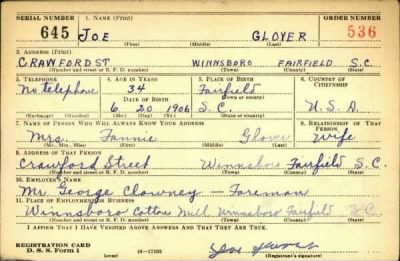 SERIAL NUMBER 1. NAME (Print) ORDER NUMBER
645 JOE GLOVER 536
(First) (Middle) (Last)
2. ADDRESS (Print)
CRAWFORD ST WINNSBORO FAIRFIELD S.C.
(Number and street or R. F. D. number) (Town) (County) (State)
3. TELEPHONE 4. AGE IN YEARS 5. PLACE OF BIRTH 6. COUNTRY OF CITIZENSHIP
No telephone 34 Fairfield
DATE OF BIRTH (Town or county)
6 20 1906 S.C. U.S.A
(Exchange) (Number) (Mo.) (Day) (Yr.) (State or country)
7. NAME OF PERSON WHO WILL ALWAYS KNOW YOUR ADDRESS 8. RELATIONSHIP OF THAT PERSON
Mrs. Fannie Glover wife
(Mr., Mrs., Miss) (First) (Middle) (Last)
9. ADDRESS OF THAT PERSON
Crawford Street Winnsboro Fairfield S.C.
(Number and street or R. F. D. number) (Town) (County) (State)
10. EMPLOYER'S NAME
Mr. George Clowney — Foreman
11. PLACE OF EMPLOYMENT OR BUSINESS
Winnsboro Cotton Mill Winnsboro Fairfield S.C.
(Number and street or R. F. D. number) (Town) (County) (State)
I AFFIRM THAT I HAVE VERIFIED ABOVE ANSWERS AND THAT THEY ARE TRUE.
REGISTRATION CARD
D. S. S. Form 1 (over) (Registrant's signature)